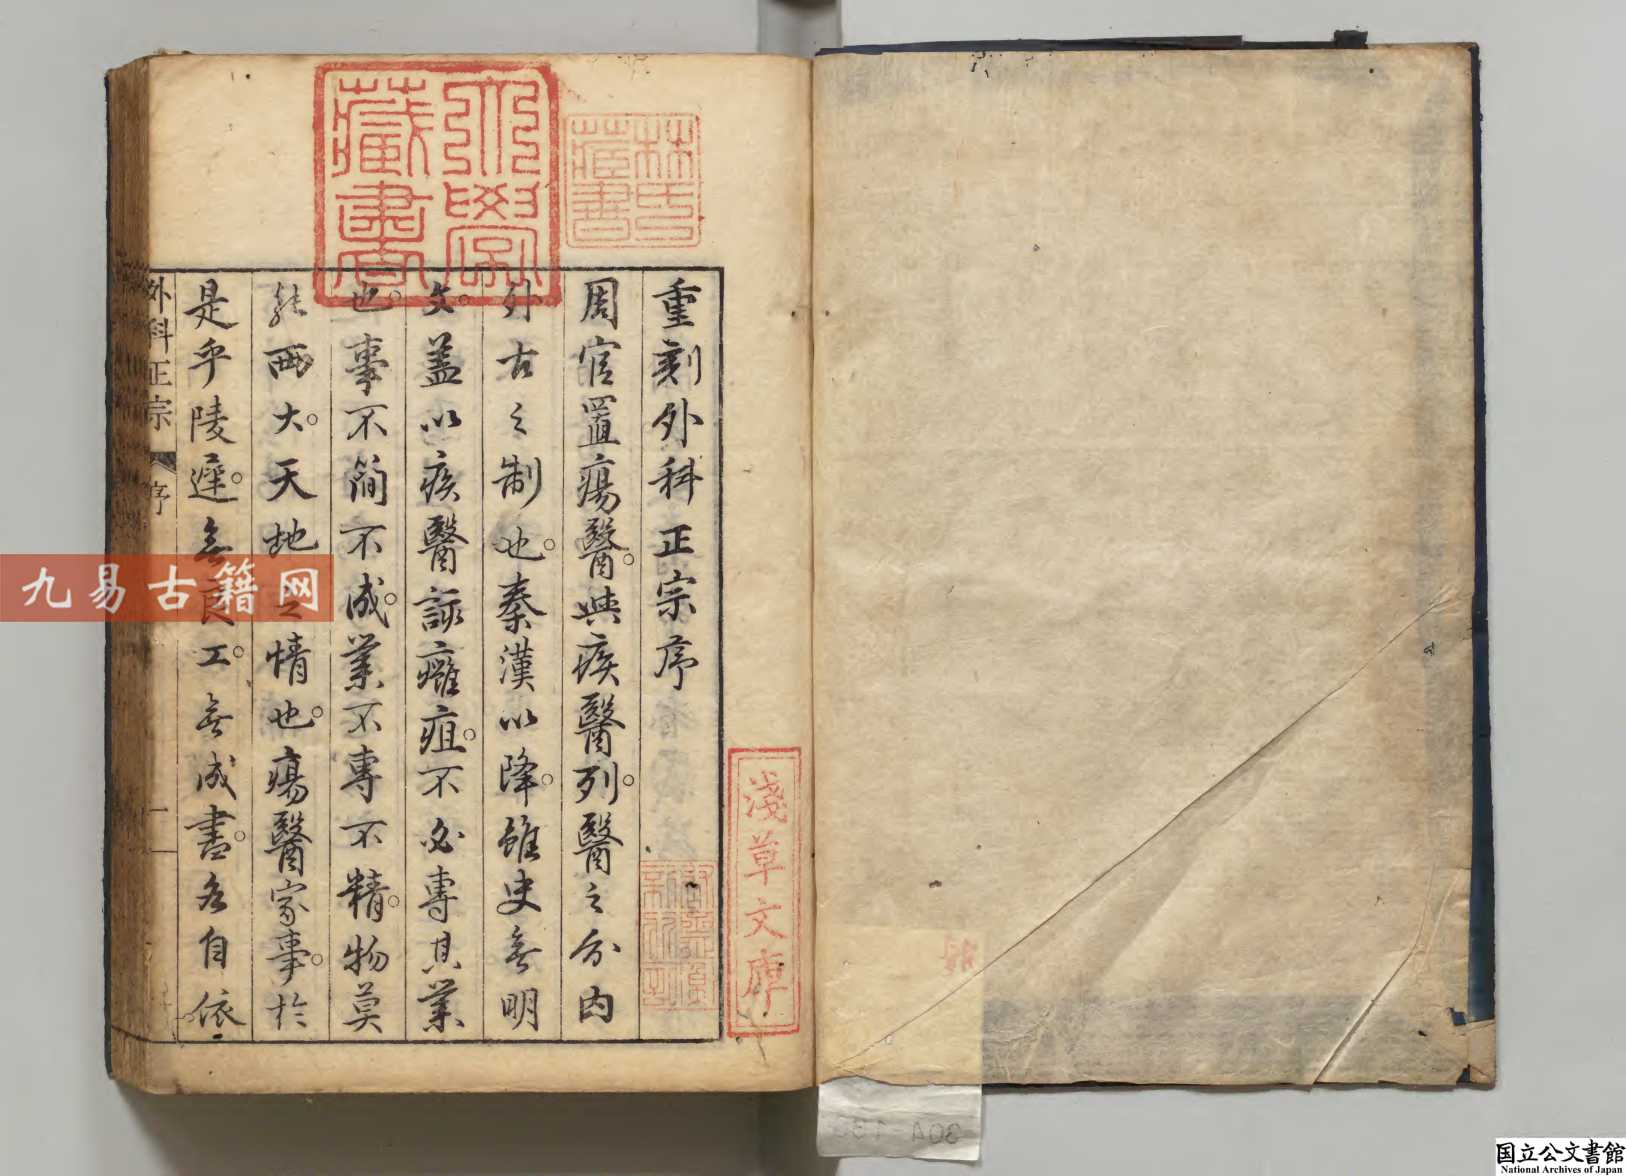 重刻外科正宗序
周官置瘍醫與疾醫列醫之分内
外古之制也秦漢以降雖史無明
文蓋以疾醫該癰疽不必專其業
也事不簡不成業不專不精物莫
能兩大天地之情也瘍醫家事於
是乎陵遲無良工無成書各自依
外科正宗
序
一
大學藏書
林氏藏書
淺草文庫
九易古籍网
国立公文書館
National Archives of Japan